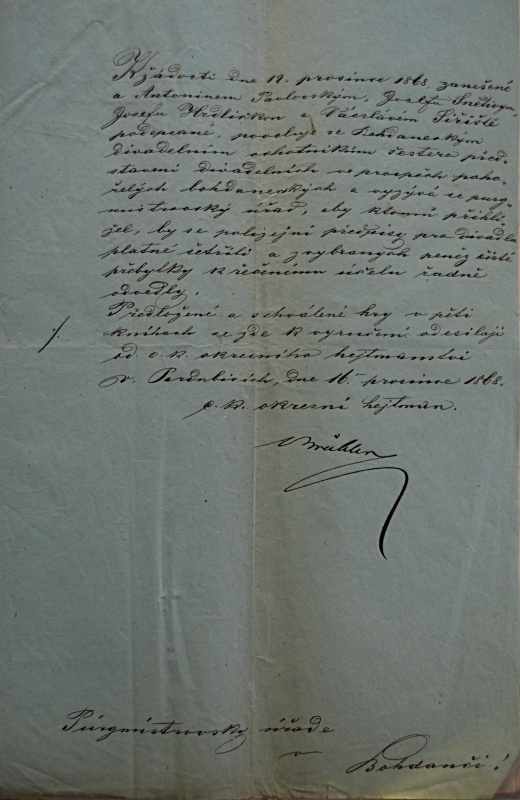 K žádosti dne 12. prosince 1868. zanešené
a Antonínem Pavlovským, Josefem Snětivým,
Josefem Hrdličkou a Václavem Šířiště
podepsané, povoluje se Bohdaneckým
divadelním ochotníkům čestere před-
stavení divadelních ve prospěch poho-
řelých bohdaneckých a vyzývá se purg-
mistrovský úřad, aby k tomu přihlí-
žel, by se policejní předpisy pro divadla
platné šetřili a z vybraných peněz čisté
přebytky k řečenému účelu řadně
odvedly.
Předložené a schválené hry v pěti
knihách se zde k vyručení odesílají
od c. k. okresního hejtmanství
v Pardubicích, dne 16. prosince 1868.
c. k. okresní hejtman.
Púrgmistrovský úřade
v
Bohdanči!